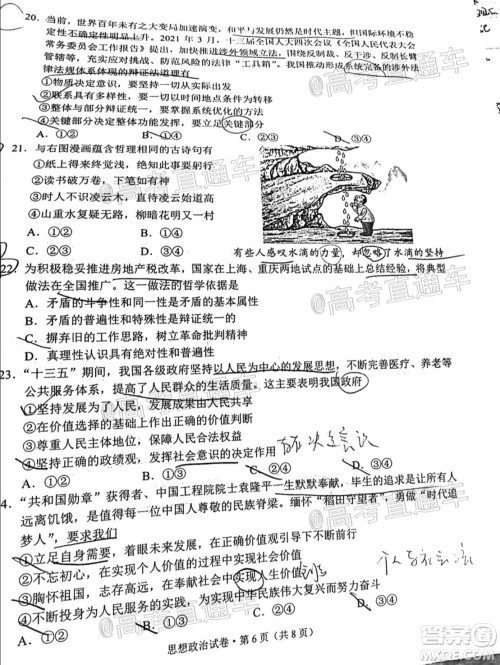 20. 当前，世界百年未有之大变局加速演变，和平与发展仍然是时代主题，但国际环境不稳
定性不确定性明显上升。2021 年 3 月，十三届全国人大四次会议《全国人民代表大会
常务委员会工作报告》提出要围绕反制裁、反干涉、反制长臂
管辖等，充实应对挑战、防范风险的法律“工具箱”。我国推动形成系统完备的涉外法
律法规体系体现的辩证法道理有
①物质决定意识，要坚持一切从实际出发
②联系具有多样性，要把一切以时间地点条件为转移
③整体与部分辩证统一，要掌握系统优化的方法
④关键部分决定整体功能，要发挥关键部分
A．①② B．①④ C．②③ D．③④
21. 与右图漫画蕴含哲理相同的古诗句有
①纸上得来终觉浅，绝知此事要躬行
②读书破万卷，下笔如有神
③时人不识凌云木，直待凌云始道高
④山重水复疑无路，柳暗花明又一村
A．①② B．①④
C．②③ D．③④
有些人感叹水滴的力量，却忽略了水滴的坚持
22. 为积极稳妥推进房地产税改革，国家在上海、重庆两地试点的基础上总结经验，将典型
做法在全国推广。这一做法的哲学依据是
A．矛盾的斗争性和同一性是矛盾的基本属性
B．矛盾的普遍性和特殊性是辩证统一的
C．摒弃旧的工作思路，树立革命批判精神
D．真理性认识具有绝对性和普遍性
23. “十三五”期间，我国各级政府坚持以人民为中心的发展思想，不断完善医疗、养老等
公共服务体系，提高了人民群众的生活质量。这主要表明我国政府
①坚持发展为了人民，发展成果由人民共享
②在价值选择的基础上作出了正确的价值判断
③尊重人民主体地位，保障人民民主合法权益
④坚持正确的政绩观，发挥社会意识的决定作用
A．①② B．①③ C．②④ D．③④
4. “共和国勋章”获得者、中国工程院院士袁隆平一生默默奉献，毕生的追求是让所有人
远离饥饿，是一位真正的中国人尊敬的民族脊梁。缅怀“稻田守望者”，勇做“时代追
梦人”，要求我们
①立足自身需要，着眼未来发展，努力实现社会价值
②在实现个人价值的过程中实现社会价值
③胸怀祖国，志存高远，在奉献社会中实现人生价值
④不断投身为人民服务的实践，为实现中华民族伟大复兴而努力奋斗
A．①② B．①③ C．②④ D．③④
思想政治试卷·第 6 页（共 8 页）
@高考直通车
@高考直通车
@高考直通车